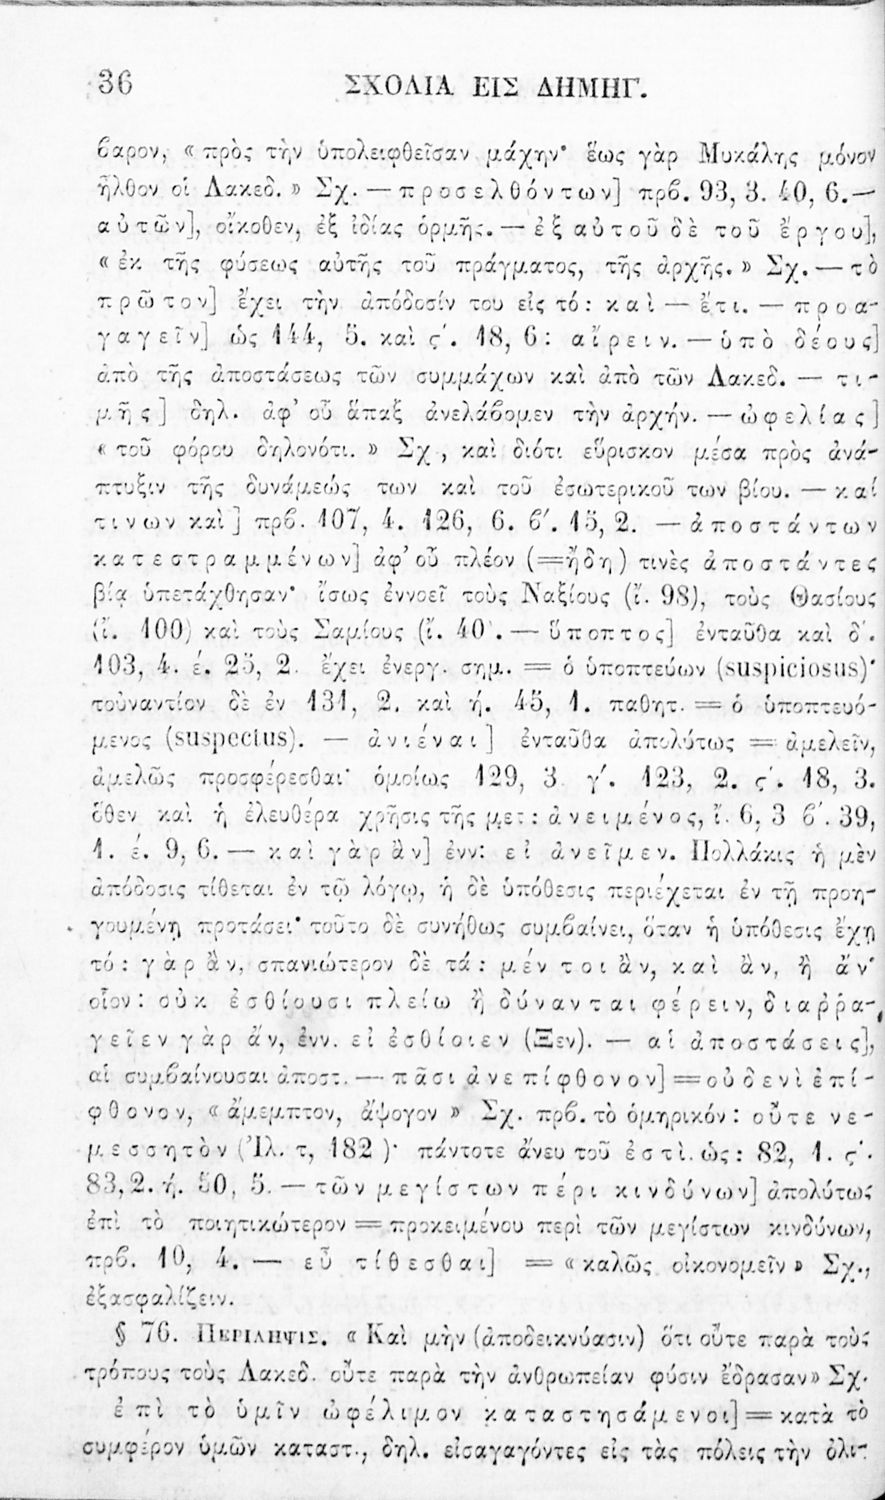 36 ΣΧΟΛΙΑ ΕΙΣ ΔΗΜΗΓ.
βαρον, « πρὸς τὴν ὑπολειφθεῖσαν μάχην· ἕως γὰρ Μυκάλης μόνον
ἦλθον οἱ Λακεδ. » Σχ. — προσελθόντων] πρβ. 93, 3. 40, 6. —
αὐτῶν], οἴκοθεν, ἐξ ἰδίας ὁρμῆς. — ἐξ αὐτοῦ δὲ τοῦ ἔργου],
« ἐκ τῆς φύσεως αὐτῆς τοῦ πράγματος, τῆς ἀρχῆς. » Σχ. — τὸ
πρῶτον] ἔχει τὴν ἀπόδοσίν του εἰς τό: καὶ — ἔτι. — προα-
γαγεῖν] ὡς 144, 5. καὶ ς΄. 18, 6: αἴρειν. — ὑπὸ δέους]
ἀπὸ τῆς ἀποστάσεως τῶν συμμάχων καὶ ἀπὸ τῶν Λακεδ. — τι-
μῆς] δηλ. ἀφ' οὗ ἅπαξ ἀνελάβομεν τὴν ἀρχήν. — ὠφελίας]
« τοῦ φόρου δηλονότι. » Σχ., καὶ διότι εὕρισκον μέσα πρὸς ἀνά-
πτυξιν τῆς δυνάμεώς των καὶ τοῦ ἐσωτερικοῦ των βίου. — καί
τινων καὶ] πρβ. 107, 4. 126, 6. β΄. 15, 2. — ἀποστάντων
κατεστραμμένων] ἀφ' οὗ πλέον (=ἤδη) τινὲς ἀποστάντες
βίᾳ ὑπετάχθησαν· ἴσως ἐννοεῖ τοὺς Ναξίους (ἴ. 98), τοὺς Θασίους
(ἴ. 100) καὶ τοὺς Σαμίους (ἴ. 40). — ὕποπτος] ἐνταῦθα καὶ δ΄.
103, 4. έ. 25, 2. ἔχει ἐνεργ. σημ. = ὁ ὑποπτεύων (suspiciosus)·
τοὐναντίον δὲ ἐν 131, 2. καὶ ή. 45, 1. παθητ. = ὁ ὑποπτευό-
μενος (suspectus). — ἀνιέναι] ἐνταῦθα ἀπολύτως = ἀμελεῖν,
ἀμελῶς προσφέρεσθαι· ὁμοίως 129, 3. γ΄. 123, 2. ς΄. 18, 3.
ὅθεν καὶ ἡ ἐλευθέρα χρῆσις τῆς μετ: ἀνειμένος, ἴ. 6, 3 β΄. 39,
1. έ. 9, 6. — καὶ γὰρ ἂν] ἐνν: εἰ ἀνεῖμεν. Πολλάκις ἡ μὲν
ἀπόδοσις τίθεται ἐν τῷ λόγῳ, ἡ δὲ ὑπόθεσις περιέχεται ἐν τῇ προη-
γουμένῃ προτάσει· τοῦτο δὲ συνήθως συμβαίνει, ὅταν ἡ ὑπόθεσις ἔχῃ
τό: γὰρ ἂν, σπανιώτερον δὲ τά: μέν τοι ἂν, καὶ ἂν, ἢ ἄν·
οἷον: οὐκ ἐσθίουσι πλείω ἢ δύνανται φέρειν, διαῤῥα-
γεῖεν γὰρ ἄν, ἐνν. εἰ ἐσθίοιεν (Ξεν). — αἱ ἀποστάσεις],
αἱ συμβαίνουσαι ἀποστ. — πᾶσι ἀνεπίφθονον] = οὐδενὶ ἐπί-
φθονον, « ἄμεμπτον, ἄψογον » Σχ. πρβ. τὸ ὁμηρικόν: οὔτε νε-
μεσσητὸν (Ἰλ. τ, 182)· πάντοτε ἄνευ τοῦ ἐστὶ. ὡς: 82, 1. ς΄.
83, 2. ή. 50, 5. — τῶν μεγίστων πέρι κινδύνων] ἀπολύτως
ἐπὶ τὸ ποιητικώτερον = προκειμένου περὶ τῶν μεγίστων κινδύνων,
πρβ. 10, 4. — εὖ τίθεσθαι] = « καλῶς οἰκονομεῖν » Σχ.,
ἐξασφαλίζειν.
§ 76. ΠΕΡΙΛΗΨΙΣ. « Καὶ μὴν (ἀποδεικνύασιν) ὅτι οὔτε παρὰ τοὺς
τρόπους τοὺς Λακεδ. οὔτε παρὰ τὴν ἀνθρωπείαν φύσιν ἔδρασαν» Σχ.
ἐπὶ τὸ ὑμῖν ὠφέλιμον καταστησάμενοι] = κατὰ τὸ
συμφέρον ὑμῶν καταστ., δηλ. εἰσαγαγόντες εἰς τὰς πόλεις τὴν ὀλι-